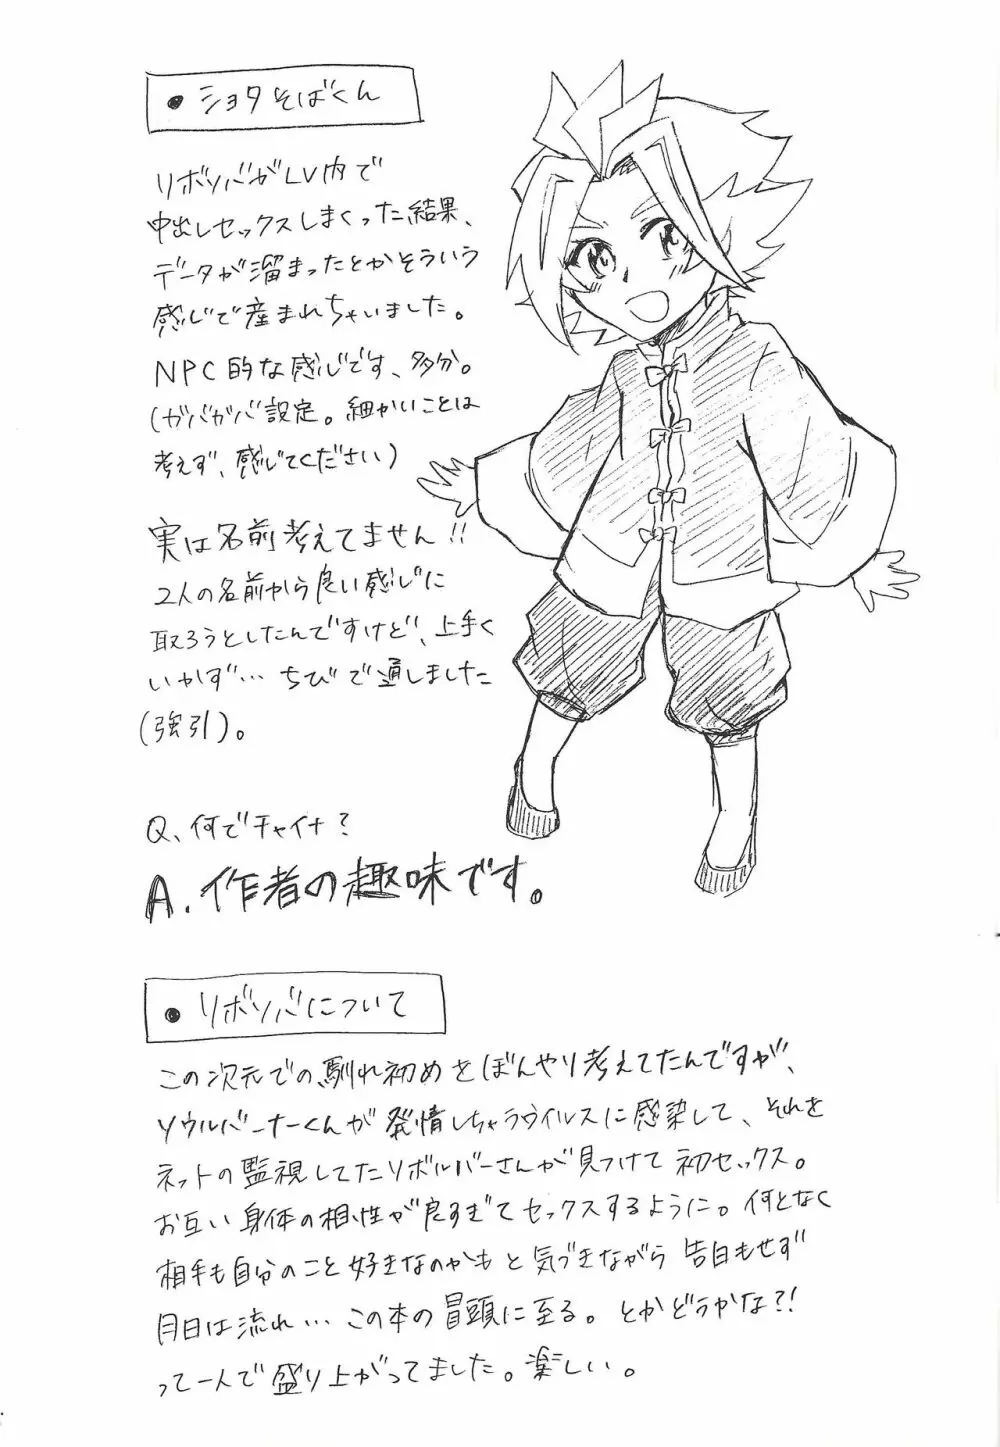 ●ショタそばくん
リボソバがLV内で
中出しセックスしまくった結果、
データが溜まったとかそういう
感じで産まれちゃいました。
NPC的な感じです、多分。
(ガバガバ設定。細かいことは
考えず、感じてください)
実は名前考えてません!!
2人の名前から良い感じに
取ろうとしたんですけど、上手く
いかず…ちびで通しました
(強引)。
Q、何でチャイナ?
A.作者の趣味です。
●リボソバについて
この次元での馴れ初めをぼんやり考えてたんですが、
ソウルバーナーくんが発情しちゃうウイルスに感染して、それを
ネットの監視してたリボルバーさんが見つけて初セックス。
お互い身体の相性が良すぎてセックスするように。何となく
相手も自分のこと好きなのかもと気づきながら告白もせず
月日は流れ…この本の冒頭に至る。とかどうかな?!
って一人で盛り上がってました。楽しい。